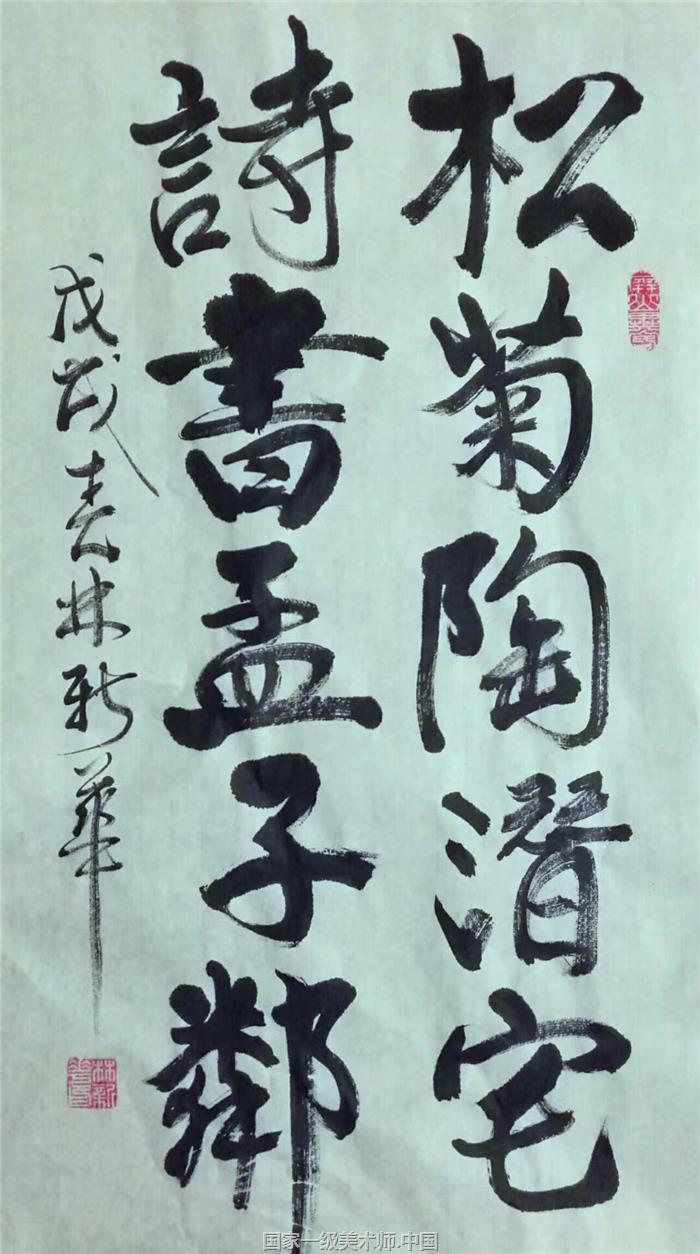 松菊陶潛宅
詩書孟子鄰
戊戌春林新華
国家一级美术师.中国